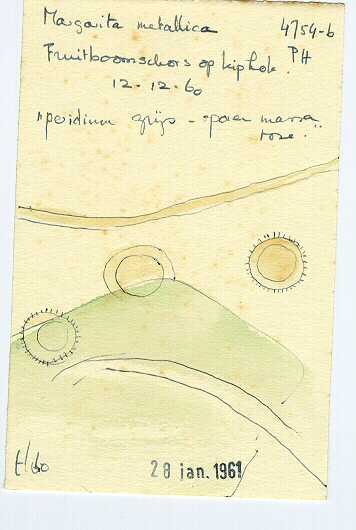 Margarita metallica 4754-b
Fruitboomschors op kiphok. PH
12-12-60
"peridium grijs - sporenmassa
rose."
28 jan. 1961